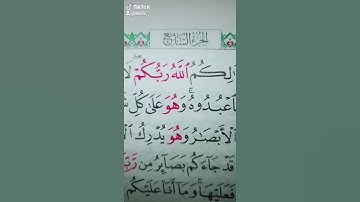 TikTok
الجزء السابع
لِكُمُ ٱللَّهُ رَبُّكُمْ ۖ لَآ
فَٱعْبُدُوهُ ۚ وَهُوَ عَلَىٰ كُلِّ
ٱلْأَبْصَٰرُ وَهُوَ يُدْرِكُ
قَدْ جَآءَكُم بَصَآئِرُ مِن رَّبِّ
فَعَلَيْهَا ۚ وَمَآ أَنَا۠ عَلَيْكُم